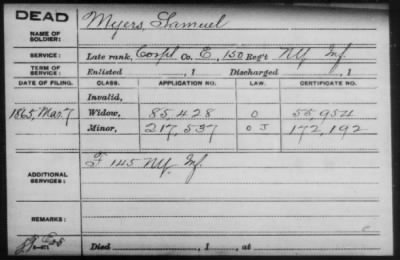 DEAD
Myers, Samuel
NAME OF SOLDIER:
SERVICE: Late rank, Corpl Co. E, 150 Reg't NY Inf.
TERM OF SERVICE: Enlisted , 1 Discharged , 1
DATE OF FILING. CLASS. APPLICATION NO. LAW. CERTIFICATE NO.
Invalid,
1865, Mar. 7 Widow, 85,428 O 55,954
Minor, 217,537 O J 172,192
ADDITIONAL SERVICES: F 145 NY Inf.
REMARKS:
Died , 1 , at